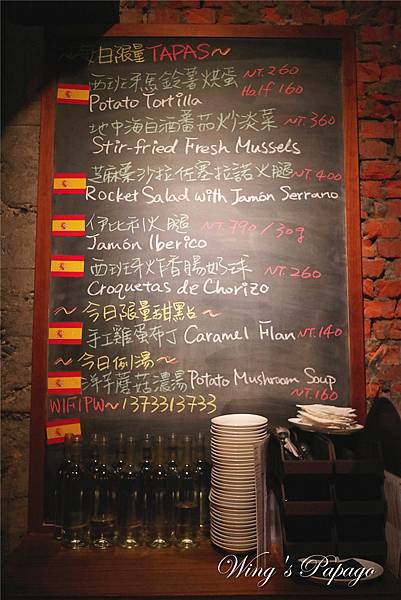 ～每日限量TAPAS～
西班牙馬鈴薯烘蛋 NT.260
Potato Tortilla Half 160
地中海白酒番茄炒淡菜 NT.360
Stir-fried Fresh Mussels
芝麻葉沙拉佐塞拉諾火腿 NT.400
Rocket Salad with Jamón Serrano
伊比利火腿 NT.790/30g
Jamón Iberico
西班牙炸香腸奶球 NT.260
Croquetas de Chorizo
～今日限量甜點～
手工雞蛋布丁 Caramel Flan NT.140
～今日例湯～
洋芋蘑菇濃湯 Potato Mushroom Soup
NT.160
WIFI PW～1373313733
Wing's Papago